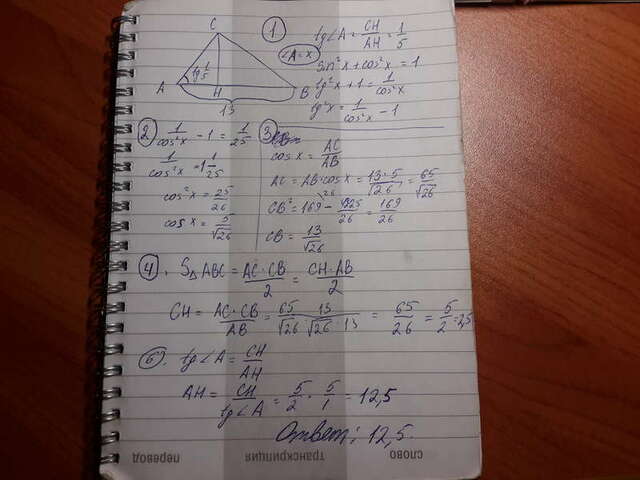 C
tg 1/5
A H B
13
1
∠A = x
tg∠A = CH/AH = 1/5
sin²x + cos²x = 1
tg²x + 1 = 1/cos²x
tg²x = 1/cos²x - 1
2 1/cos²x - 1 = 1/25
1/cos²x = 1 1/25
cos²x = 25/26
cos x = 5/√26
3
cos x = AC/AB
AC = AB·cos x = 13·5/√26 = 65/√26
CB² = 169 - 4225/26 = 169/26
CB = 13/√26
4. S△ABC = AC·CB/2 = CH·AB/2
CH = AC·CB/AB = 65/√26 · 13/√26·13 = 65/26 = 5/2 = 2,5
tg∠A = CH/AH
AH = CH/tg∠A = 5/2 · 5/1 = 12,5
Ответ: 12,5.
слово транскрипция перевод